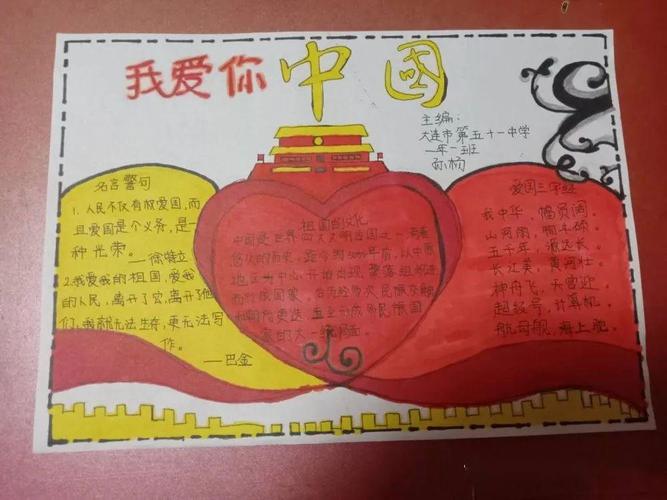 我爱你中國
主编:
大连市第五十一中学
一年一班
孙杨
名言警句
1、人民不仅有权爱国,而
且爱国是个义务,是一
种光荣。—徐特立
2、我爱我的祖国,爱我
的人民,离开了它,离开了他
们,我就无法生存,更无法写
作。
——巴金
祖国的文化
中国是世界四大文明古国之一,有着
悠久的历史,距今约5000年前,以中原
地区为中心开始出现聚落组织进
而形成国家,后历经多次民族交融
和朝代更迭,直至形成多民族国
家的大一统局面。
爱国三字经
我中华,幅员阔。
山河丽,
五千年,源远长。
长江美,黄河壮。
神舟飞,天宫迎
超级号,计算机。
航母舰,海上驰。